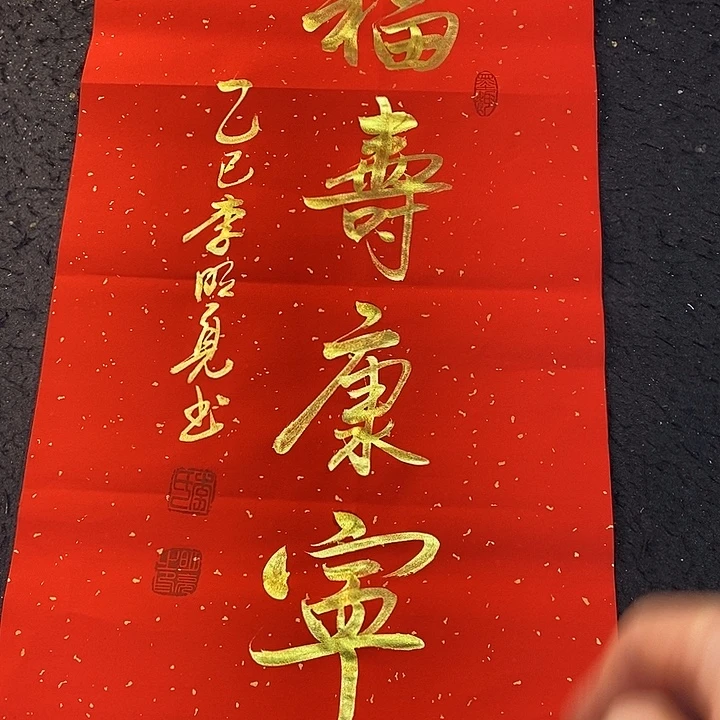 福壽康寧
乙巳李昭亮书